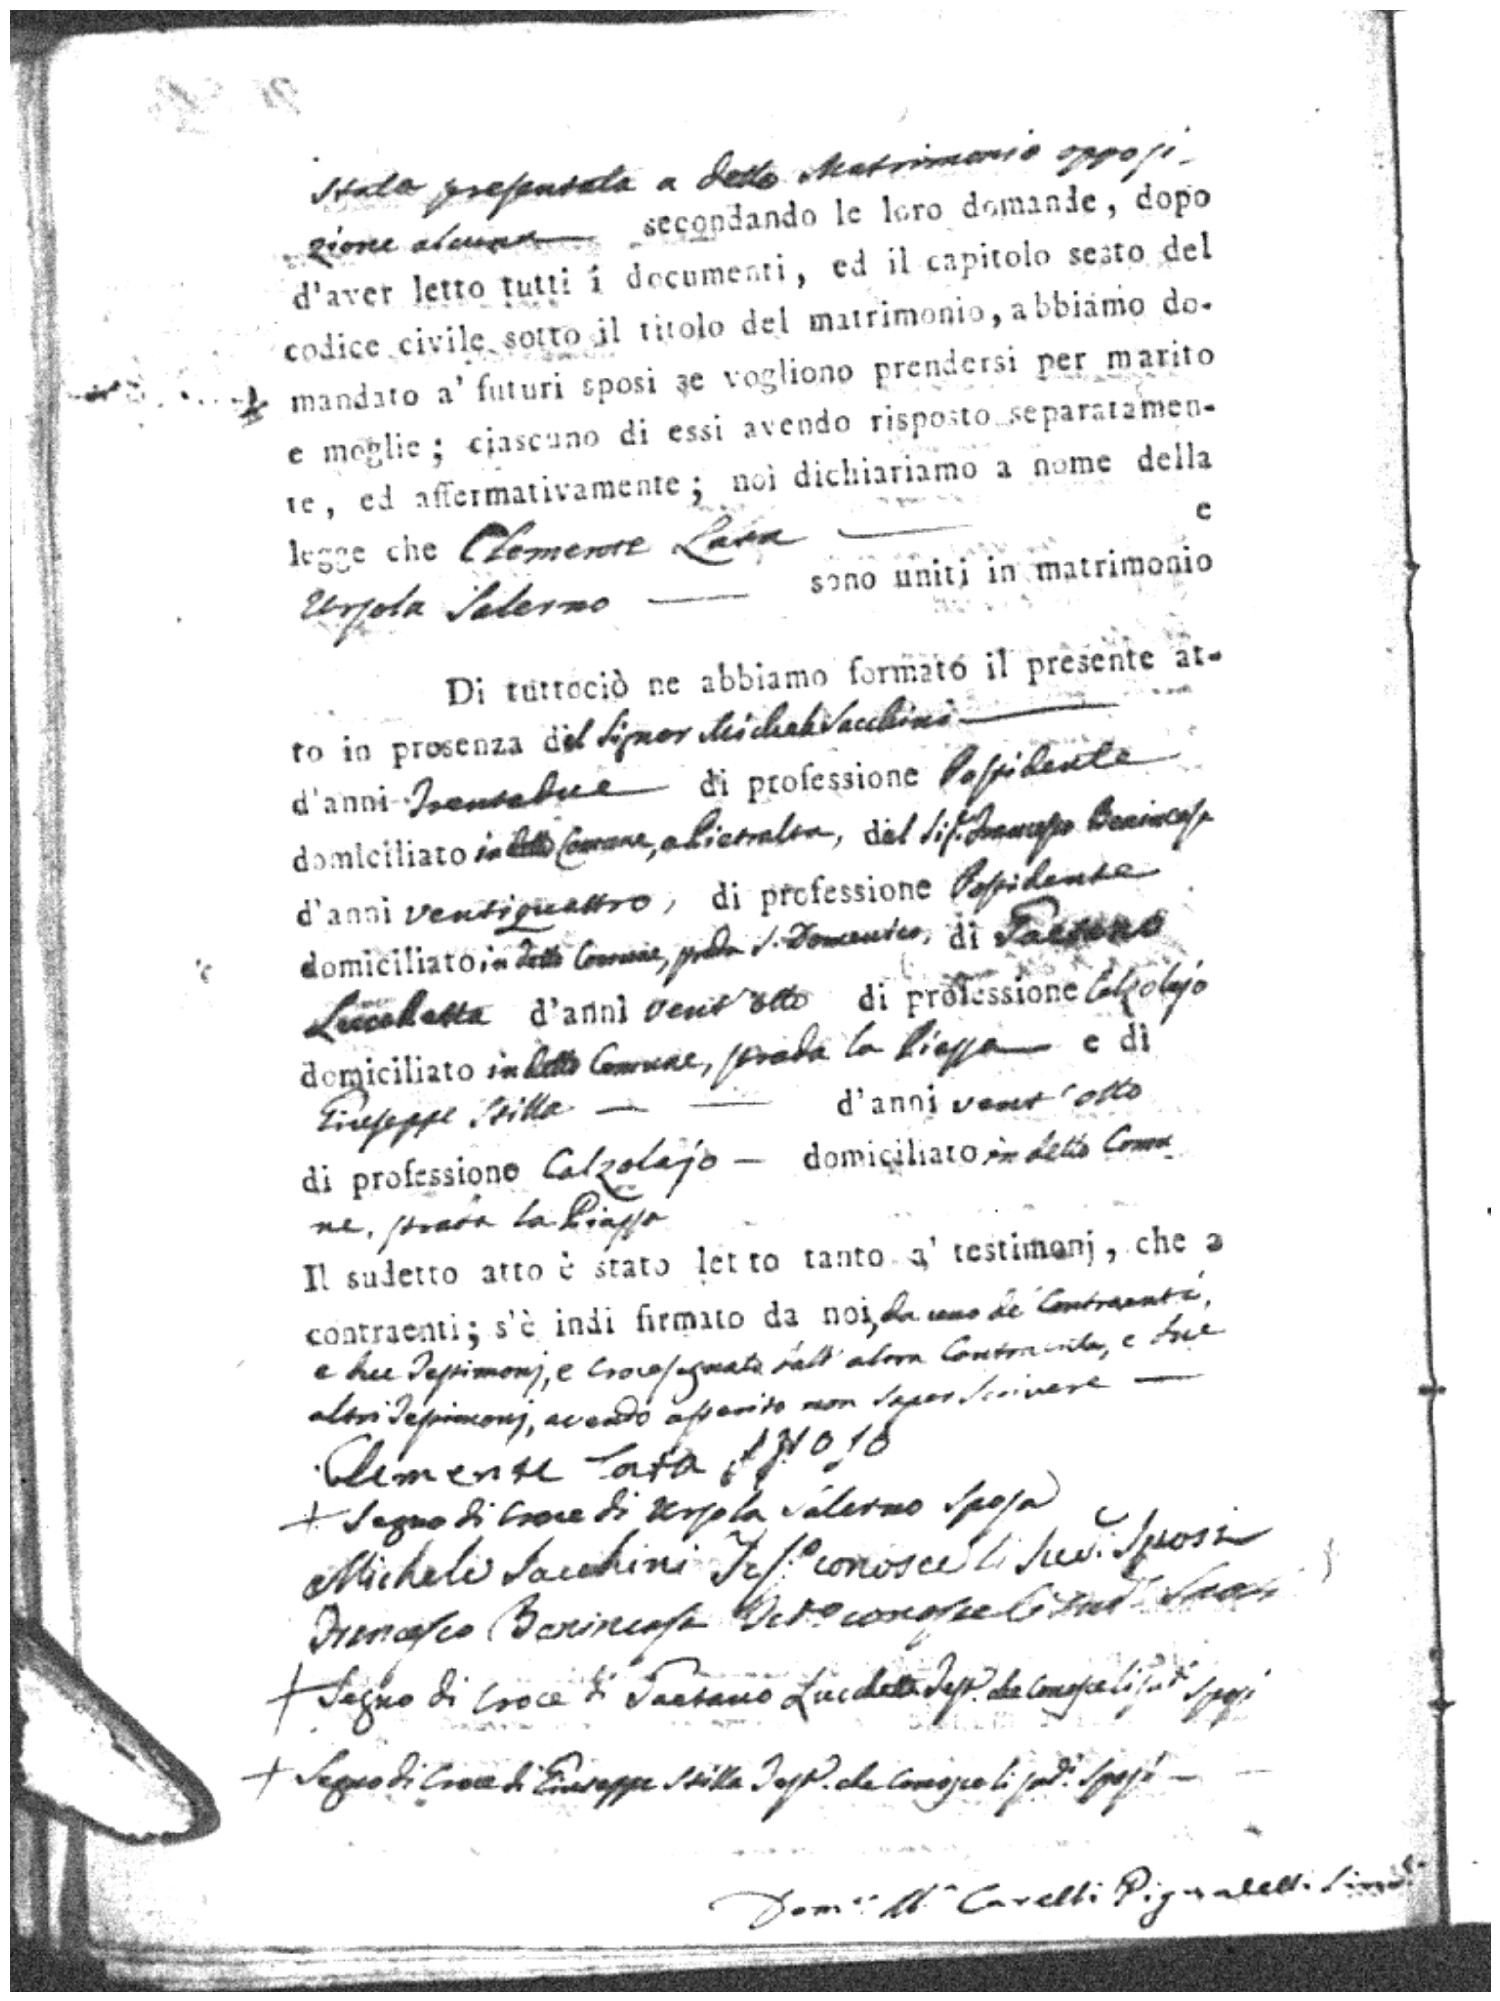 stata presentata a detto Matrimonio opposi-
zione alcuna secondando le loro domande, dopo
d'aver letto tutti i documenti, ed il capitolo sesto del
codice civile sotto il titolo del matrimonio, abbiamo do-
mandato a' futuri sposi se vogliono prendersi per marito
e moglie; ciascuno di essi avendo risposto separatamen-
te, ed affermativamente; noi dichiariamo a nome della
legge che Clemente Lata e
Ursola Salerno sono uniti in matrimonio
Di tuttociò ne abbiamo formato il presente at-
to in presenza del Signor Michele Sacchini
d'anni Trentadue di professione Possidente
domiciliato in detto Comune, a Pietralta, del Sig. Francesco Benincasa
d'anni ventiquattro, di professione Possidente
domiciliato in detto Comune, strada S. Domenico, di Gaetano
Lucchetta d'anni vent'otto di professione Calzolajo
domiciliato in detto Comune, strada la Piazza e di
Giuseppe Stilla d'anni vent'otto
di professione Calzolajo domiciliato in detto Comu
ne, strada la Piazza
Il sudetto atto è stato letto tanto a' testimonj, che a
contraenti; s'è indi firmato da noi, da uno de' Contraenti,
e due Testimonj, e crocesegnato dall'altra Contraente, e due
altri Testimonj, avendo asserito non saper scrivere
Clemente Lata sposo
+ Segno di Croce di Ursola Salerno sposa
Michele Sacchini Tes.º conosce li sud.i Sposi
Francesco Benincasa conosce li sud.i Sposi
+ Segno di Croce di Gaetano Lucchetta Test.º che conosce li sud.i sposi
+ Segno di Croce di Giuseppe Stilla Test.º che conosce li sud.i sposi
Dom.co M.a Carelli Pignatelli Sind.co